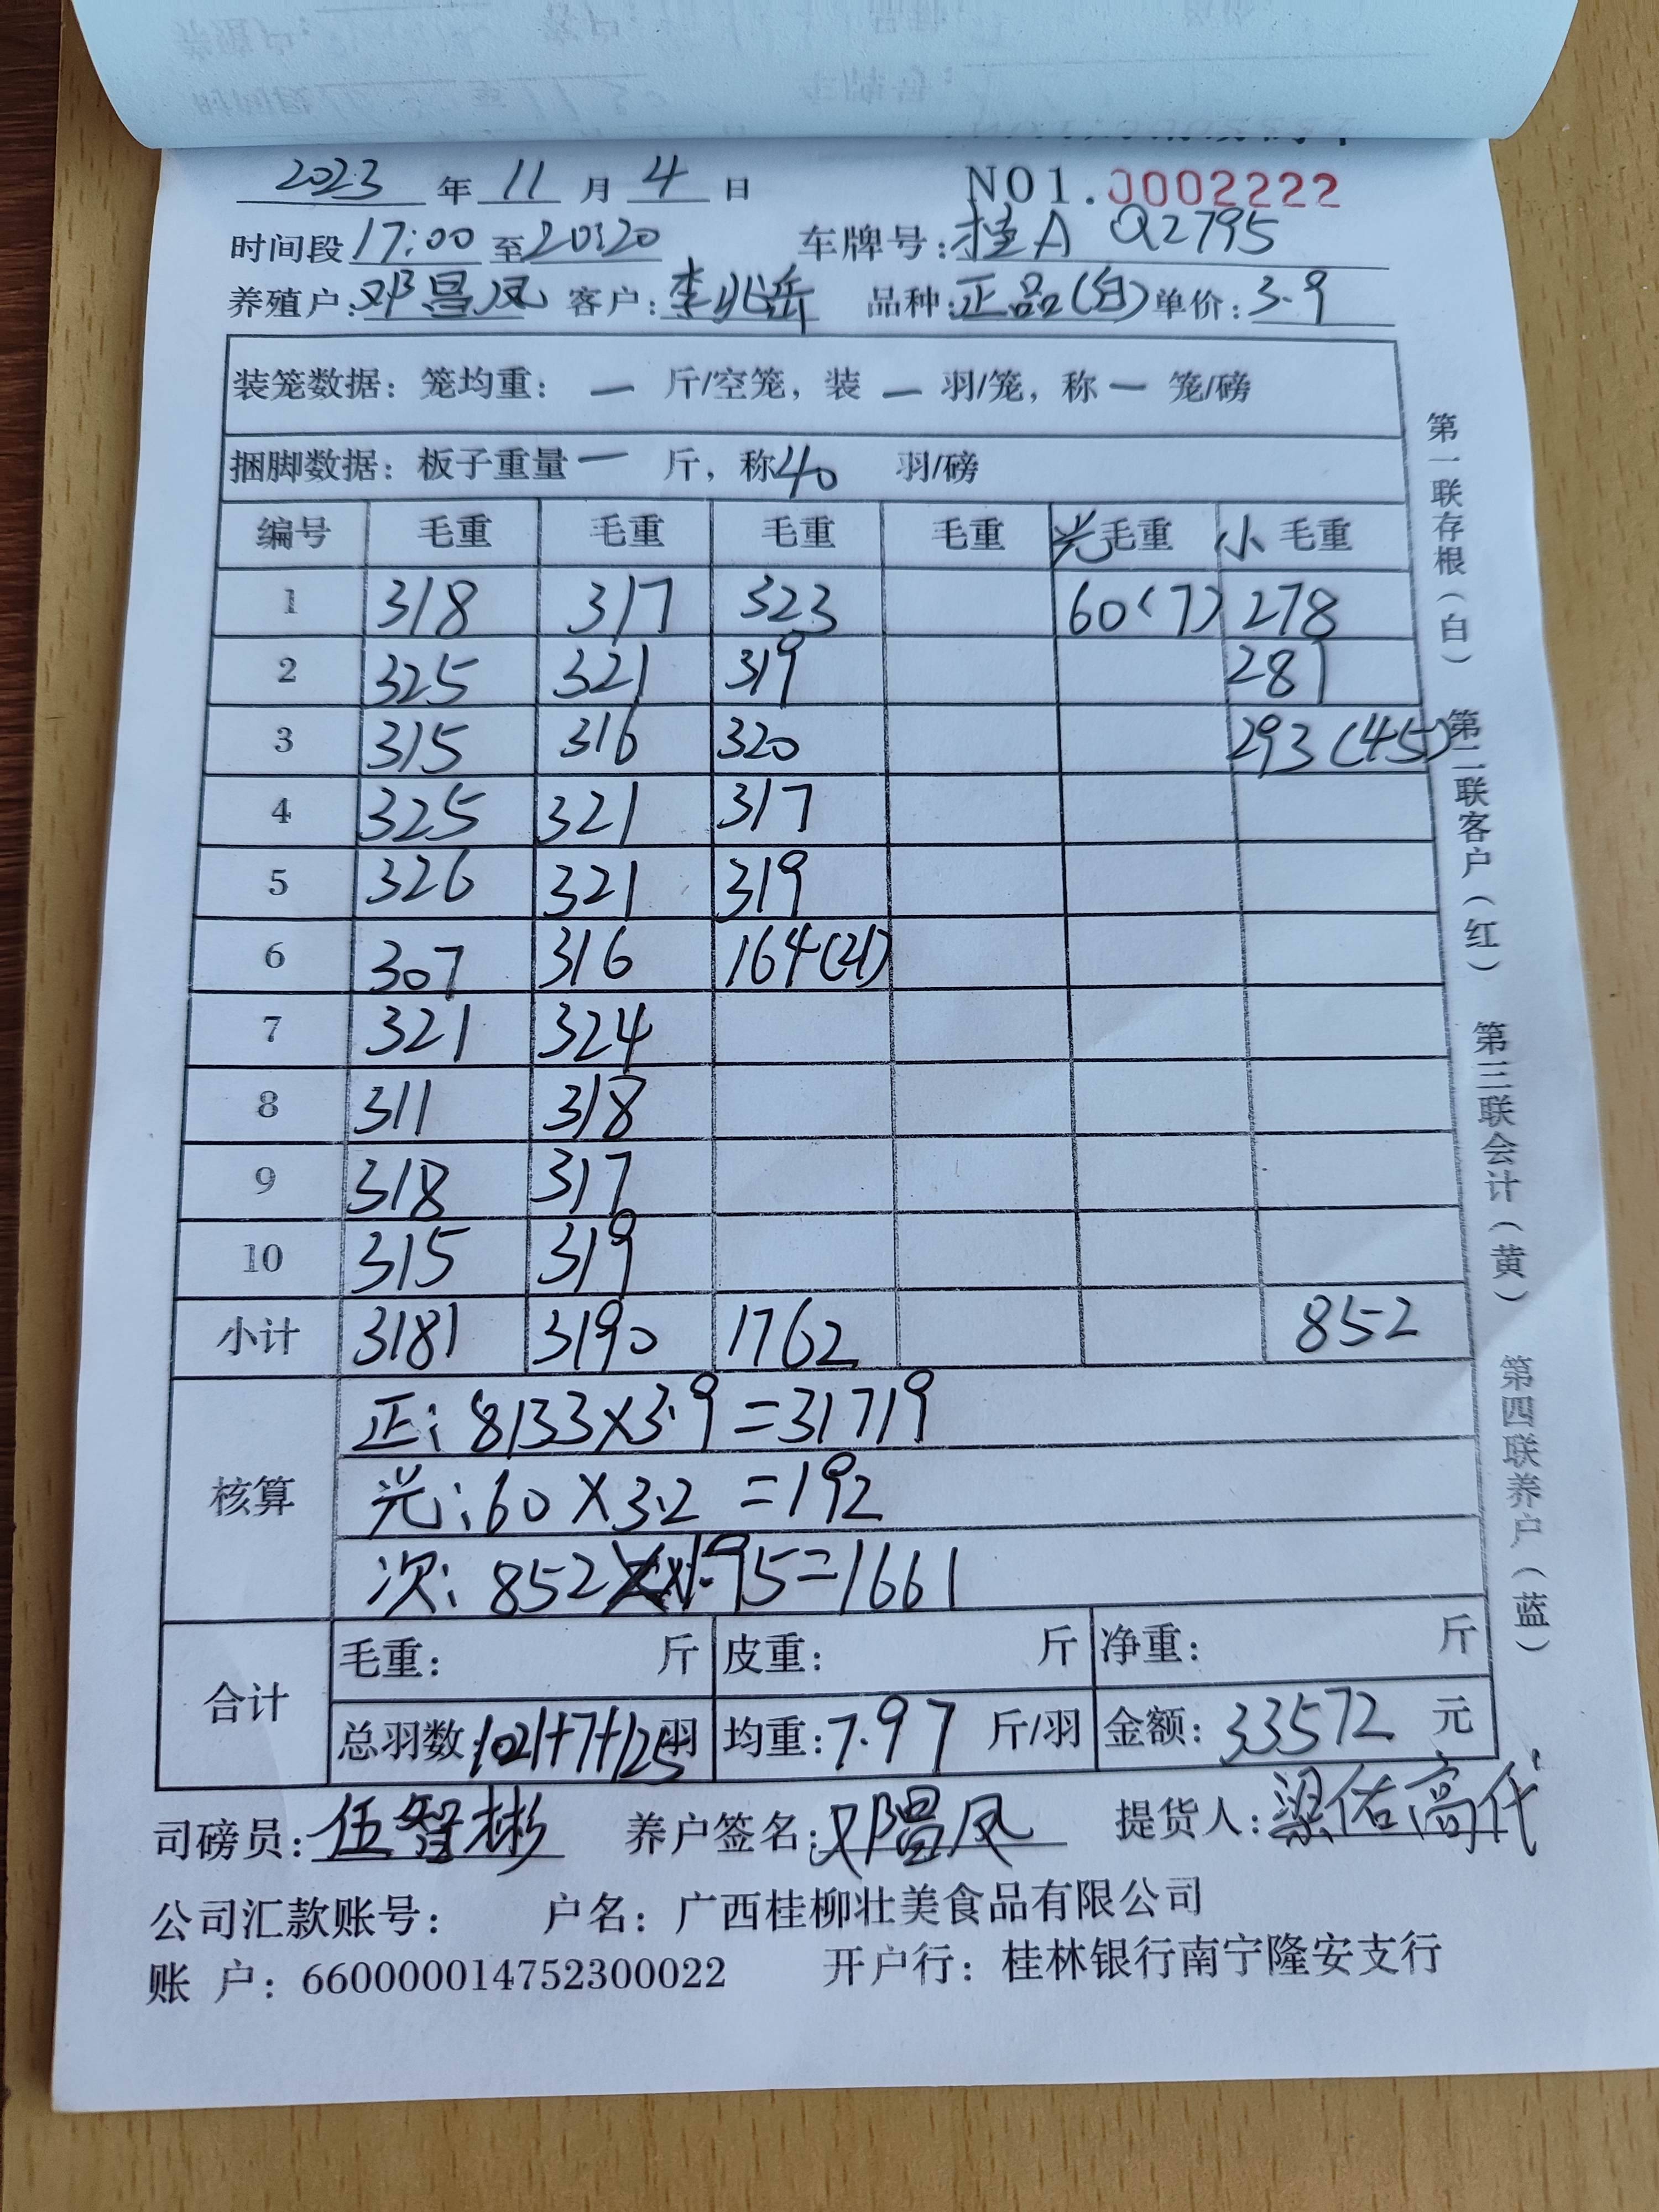 2023 年 11 月 4 日 NO1.0002222
时间段 17:00 至 20:20 车牌号: 桂A Q2795
养殖户: 邓昌凤 客户: 李兆岳 品种: 正品(白) 单价: 3.9
装笼数据: 笼均重: 一 斤/空笼, 装 一 羽/笼, 称 一 笼/磅
捆脚数据: 板子重量 一 斤, 称 40 羽/磅
编号 毛重 毛重 毛重 毛重 光毛重 小毛重
1 318 317 323 60(7) 278
2 325 321 319 281
3 315 316 320 293(45)
4 325 321 317
5 326 321 319
6 307 316 164(21)
7 321 324
8 311 318
9 318 317
10 315 319
小计 3181 3190 1762 852
核算
正: 8133×3.9=31719
光: 60×3.2=192
次: 852×1.95=1661
合计
毛重: 斤 皮重: 斤 净重: 斤
总羽数: 1021+7+125羽 均重: 7.97 斤/羽 金额: 33572 元
司磅员: 伍智彬 养户签名: 邓昌凤 提货人: 梁佑高代
公司汇款账号: 户名: 广西桂柳壮美食品有限公司
账 户: 660000014752300022 开户行: 桂林银行南宁隆安支行
第一联存根(白) 第二联客户(红) 第三联会计(黄) 第四联养户(蓝)